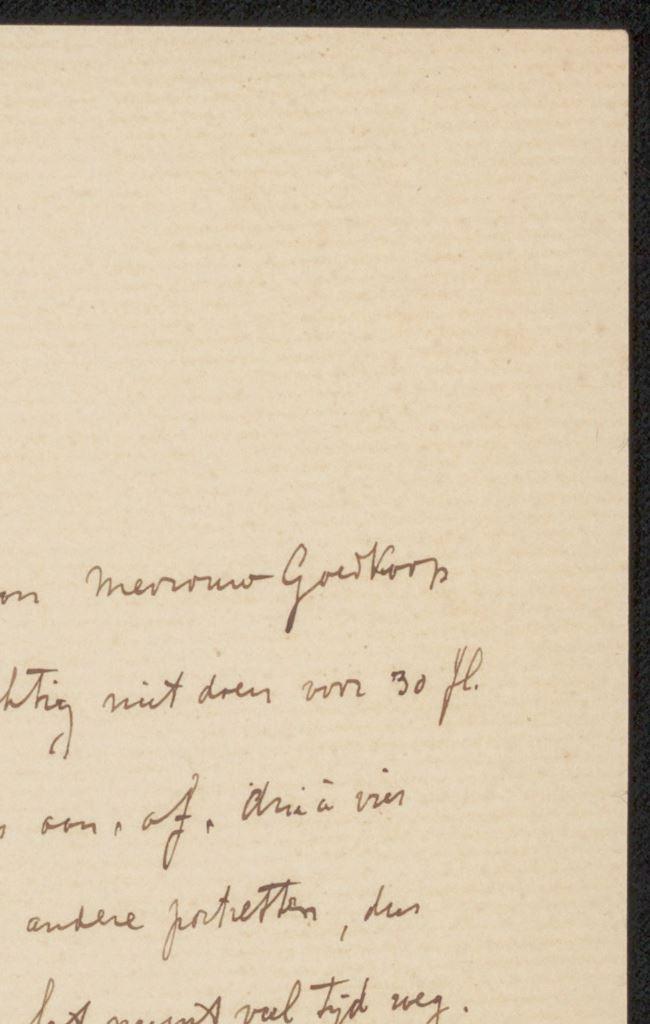 on Mevrouw Goedkoop
htig niet doen voor 30 fl.
aan. af. drie à vier
andere portretten, dus
het neemt veel tijd weg.